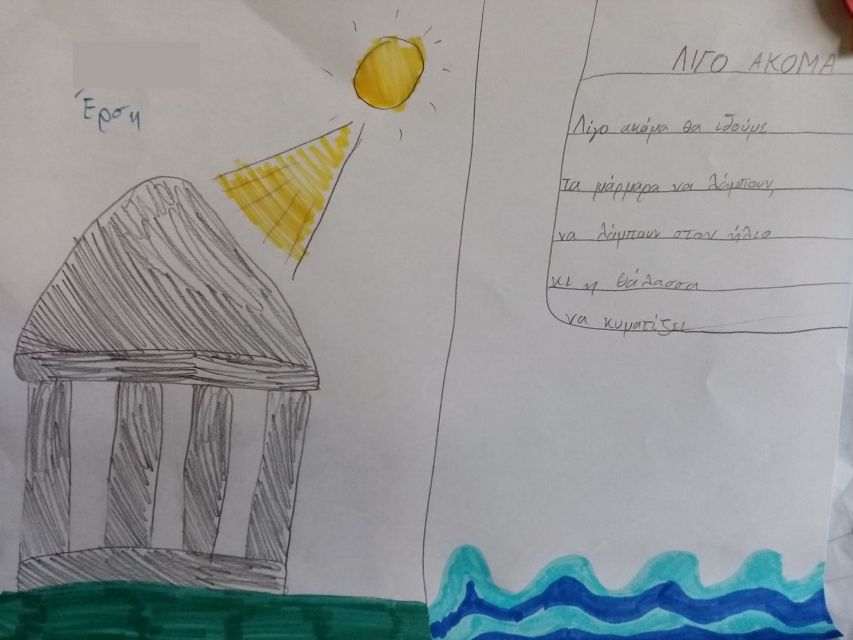 Έρση
ΛΙΓΟ ΑΚΟΜΑ
Λίγο ακόμα θα ιδούμε
Τα μάρμαρα να λάμπουν,
να λάμπουν στον ήλιο
κι η θάλασσα
να κυματίζει